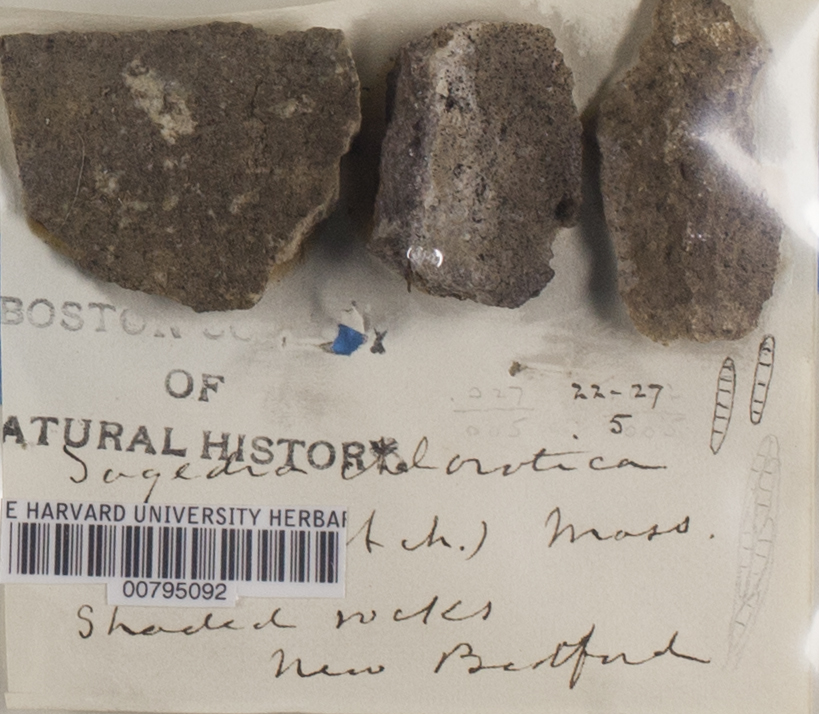 BOSTON
OF
ATURAL HISTORY
.027
005
22-27
5
Sagedia chlorotica
E HARVARD UNIVERSITY HERBAR
00795092
Ach.) Mass.
Shaded rocks
New Bedford